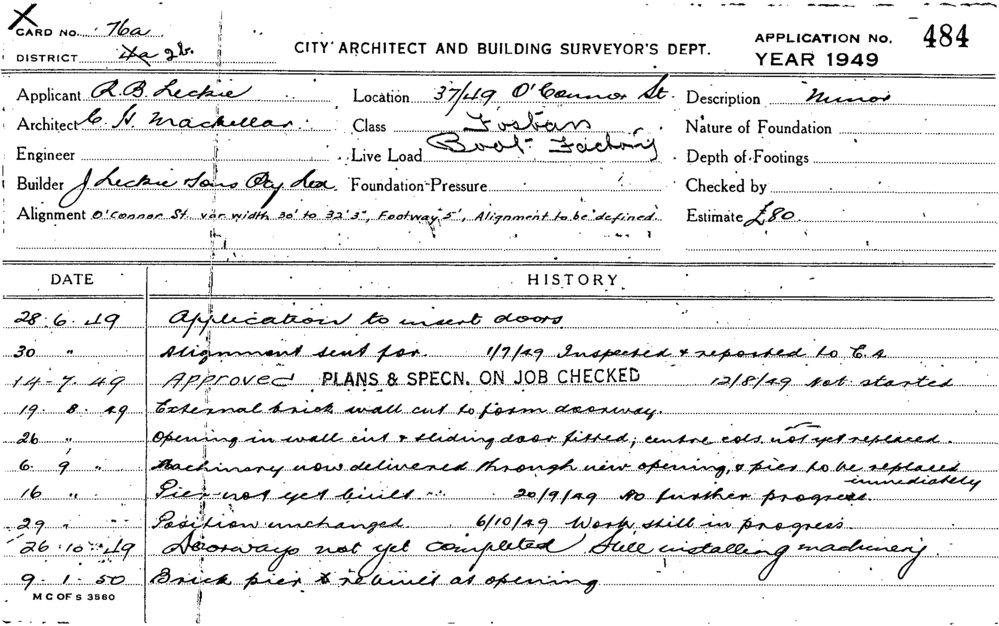 X
CARD NO. 76a
DISTRICT 4a 2b.
CITY ARCHITECT AND BUILDING SURVEYOR'S DEPT.
APPLICATION NO. 484
YEAR 1949
Applicant R.B. Leckie
Location 37/49 O'Connor St.
Description Minor
Architect C. H. Mackellar.
Class Fostars
Nature of Foundation
Engineer
Live Load Boot Factory
Depth of Footings
Builder J Leckie Sons Pty Ltd.
Foundation Pressure
Checked by
Alignment O'Connor St. var width 30' to 32'3", Footway 5', Alignment to be defined.
Estimate £80.
DATE HISTORY
28. 6. 49 Application to insert doors.
30 " Alignment sent for. 1/7/49 Inspected & reported to C.A
14-7.49 Approved PLANS & SPECN. ON JOB CHECKED 12/8/49 Not started
19. 8. 49 External brick wall cut to form doorway.
26 " Opening in wall cut & sliding door fitted; centre cols. not yet replaced.
6. 9 " Machinery now delivered through new opening, & pier to be replaced immediately
16 " Pier not yet built " 20/9/49 No further progress.
29 " Position unchanged. 6/10/49 Work still in progress
26.10.49 Doorways not yet completed Still installing machinery
9. 1. 50 Brick pier rebuilt at opening
M C OF S 3560